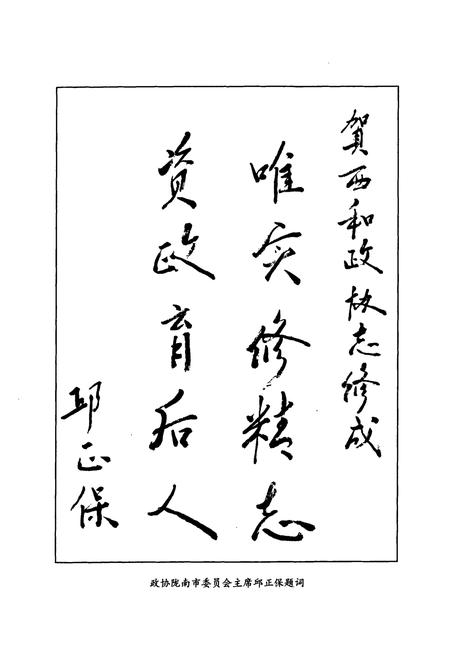 贺西和政协志修成
唯实修精志
资政育后人
邱正保
政协陇南市委员会主席邱正保题词